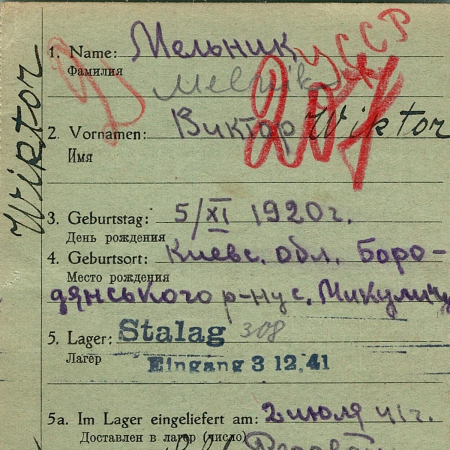 УССР
1. Name: Мельник
Фамилия Melnik
207
2. Vornamen: Виктор Wiktor
Имя
Wiktor
3. Geburtstag: 5/XI 1920г.
День рождения
4. Geburtsort: Киевс. обл. Боро-
Место рождения
дянського р-ну с. Микуличи
5. Lager: Stalag 308
Лагер Eingang 3 12.41
5a. Im Lager eingeliefert am: 2 июля 41г.
Доставлен в лагер (число)